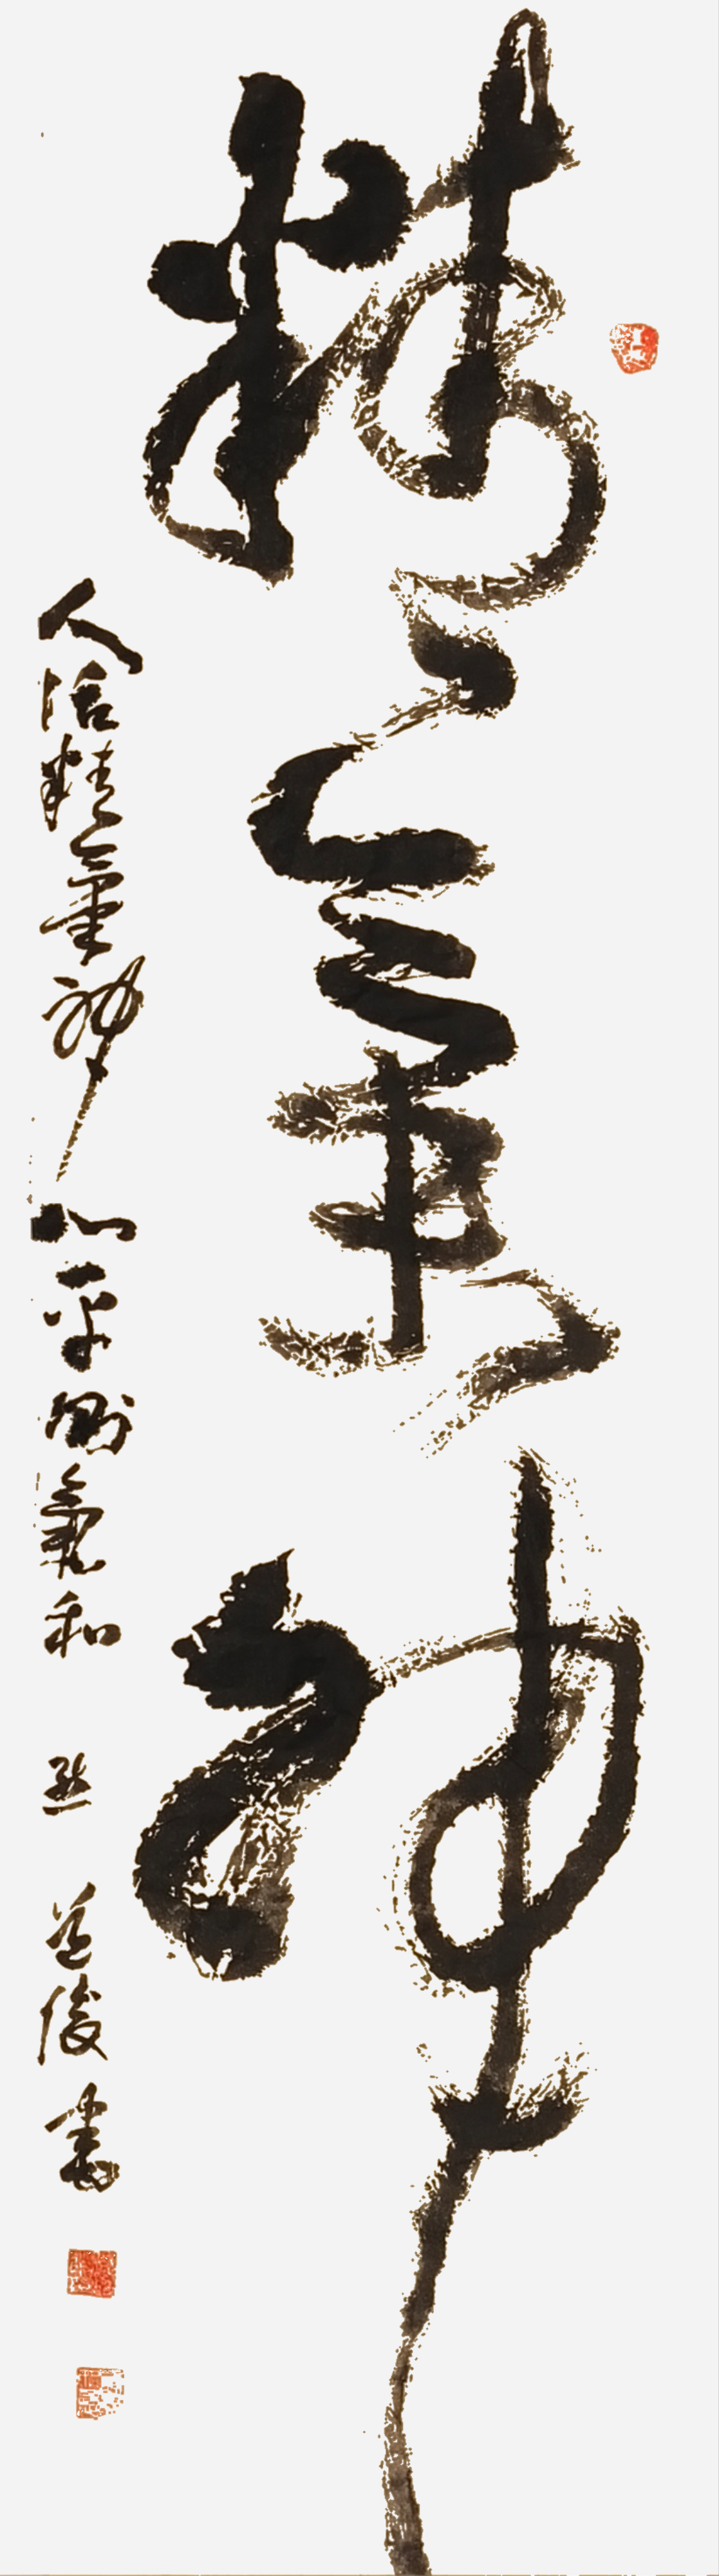 精氣神
人活精氣神 心平則氣和 道俊書